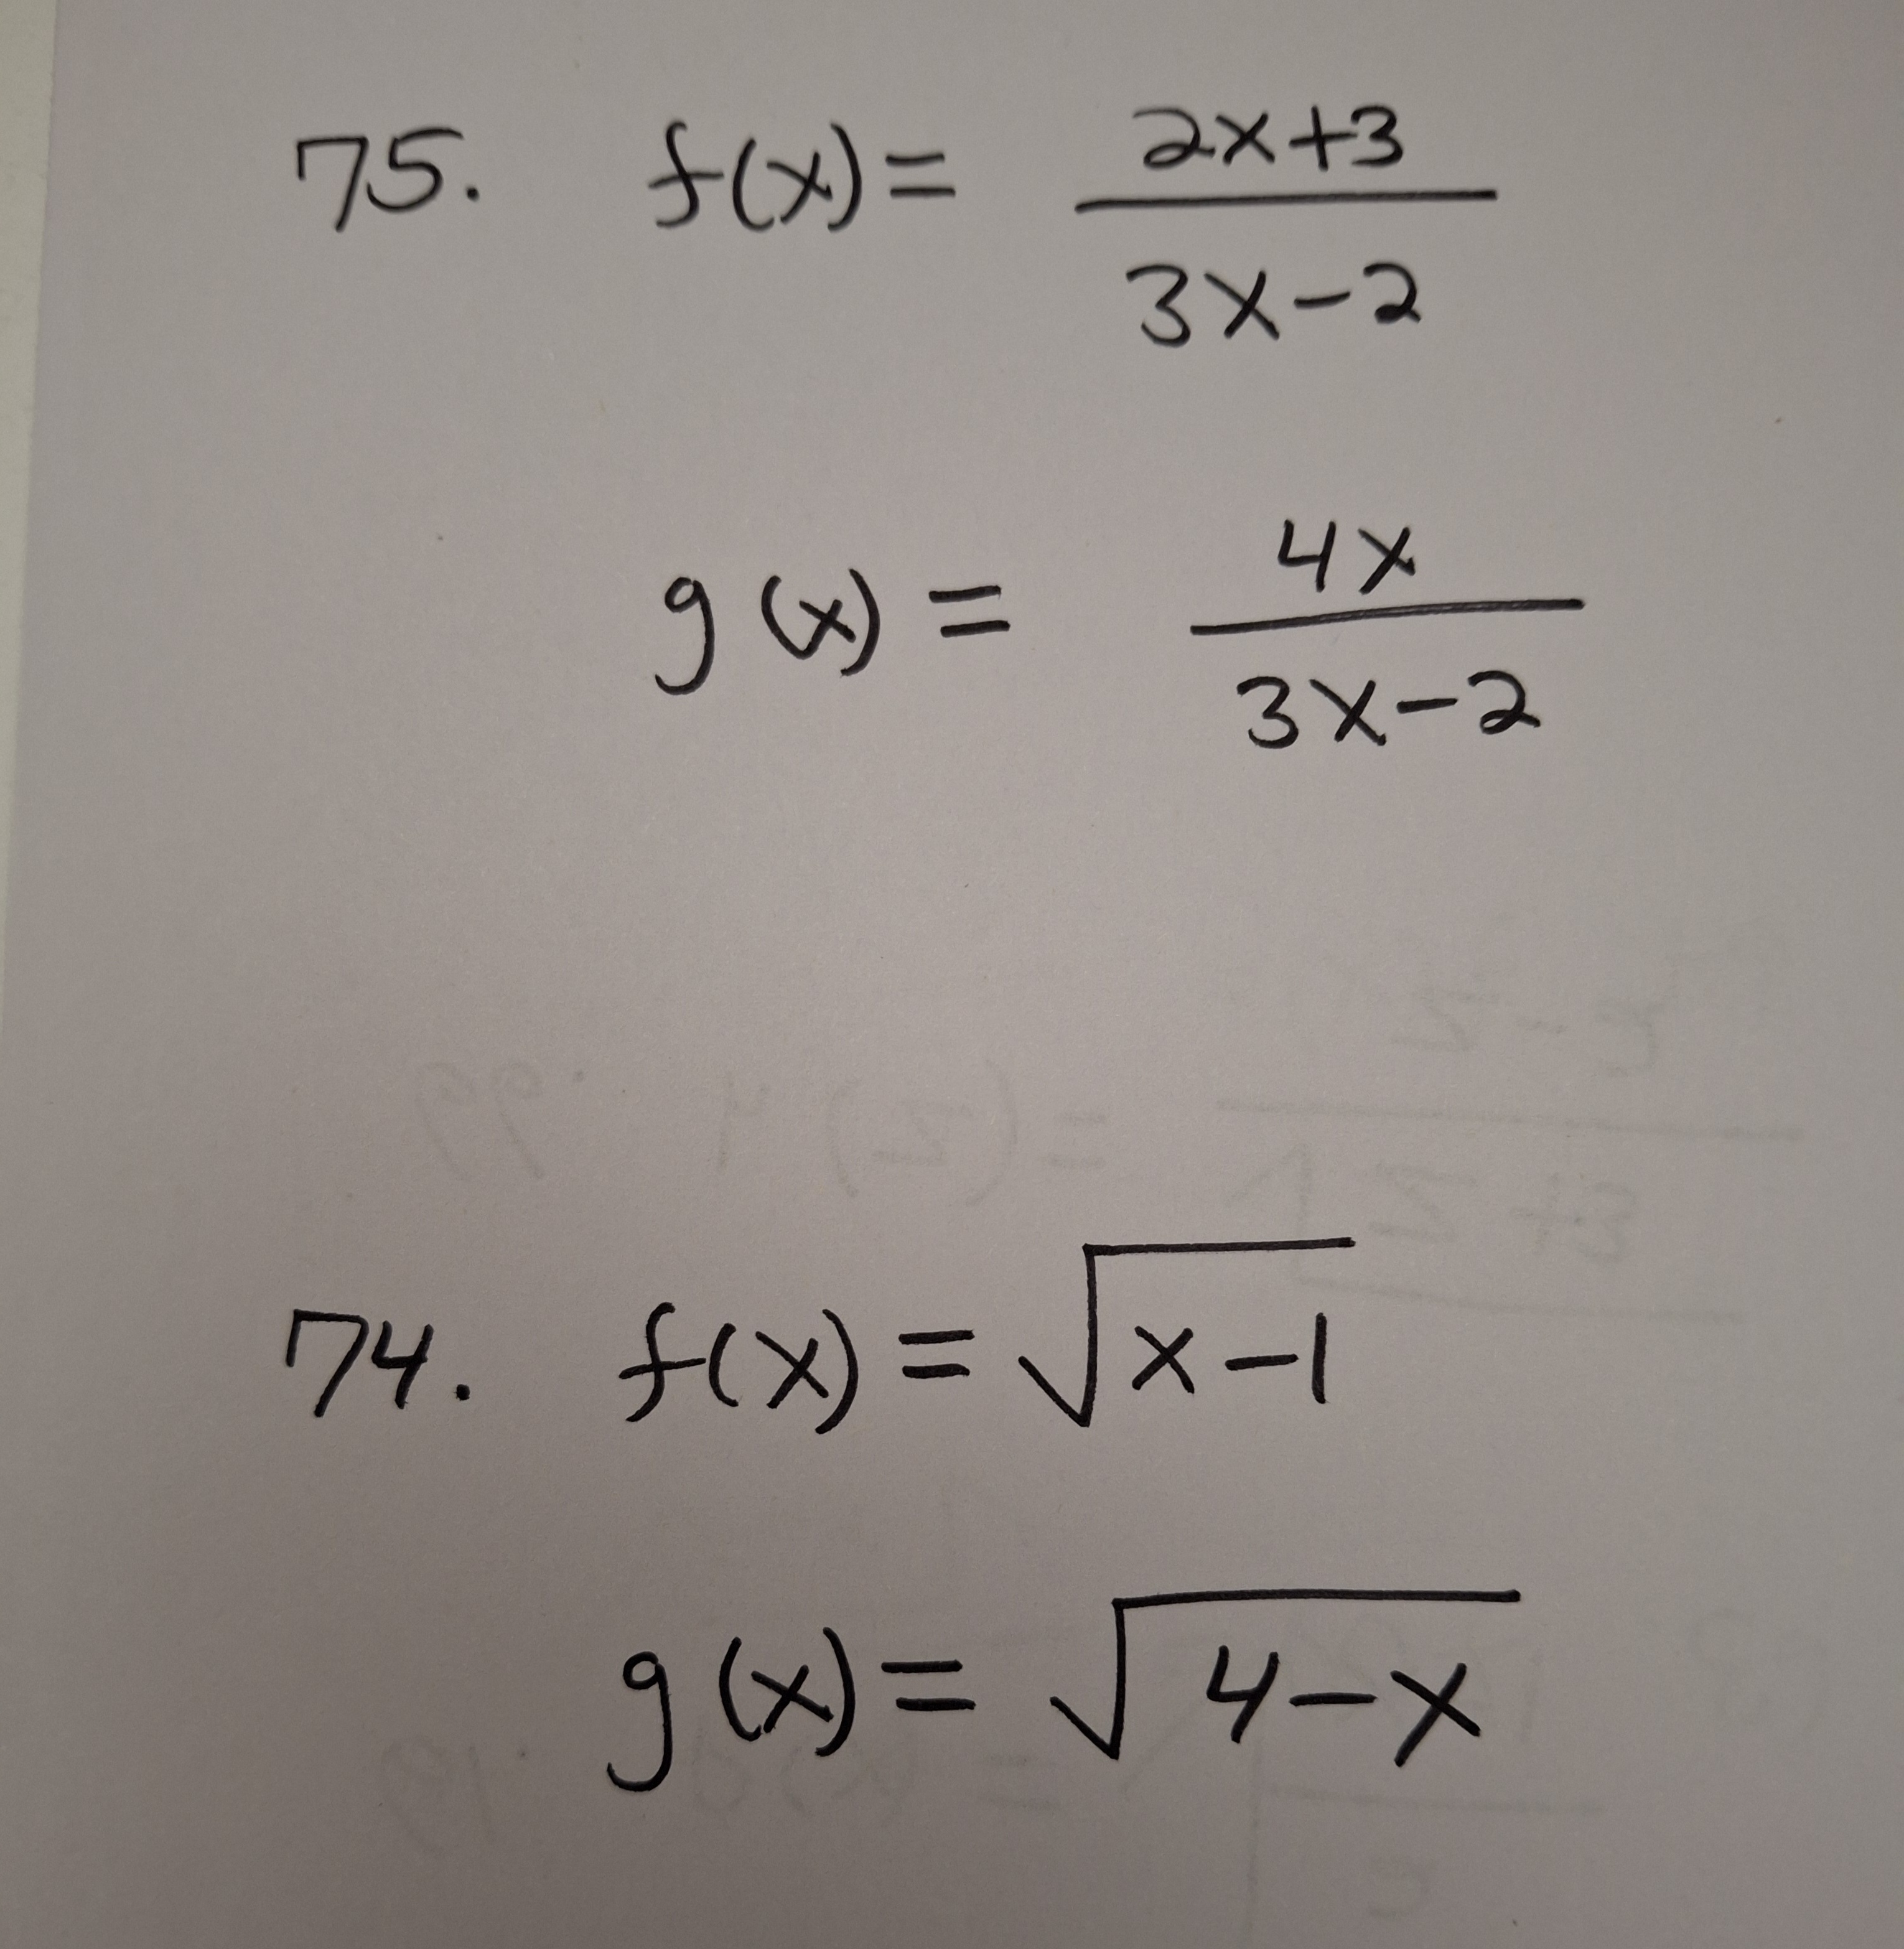 75. f(x) = (2x+3)/(3x-2)
g(x) = 4x/(3x-2)
74. f(x) = √(x-1)
g(x) = √(4-x)